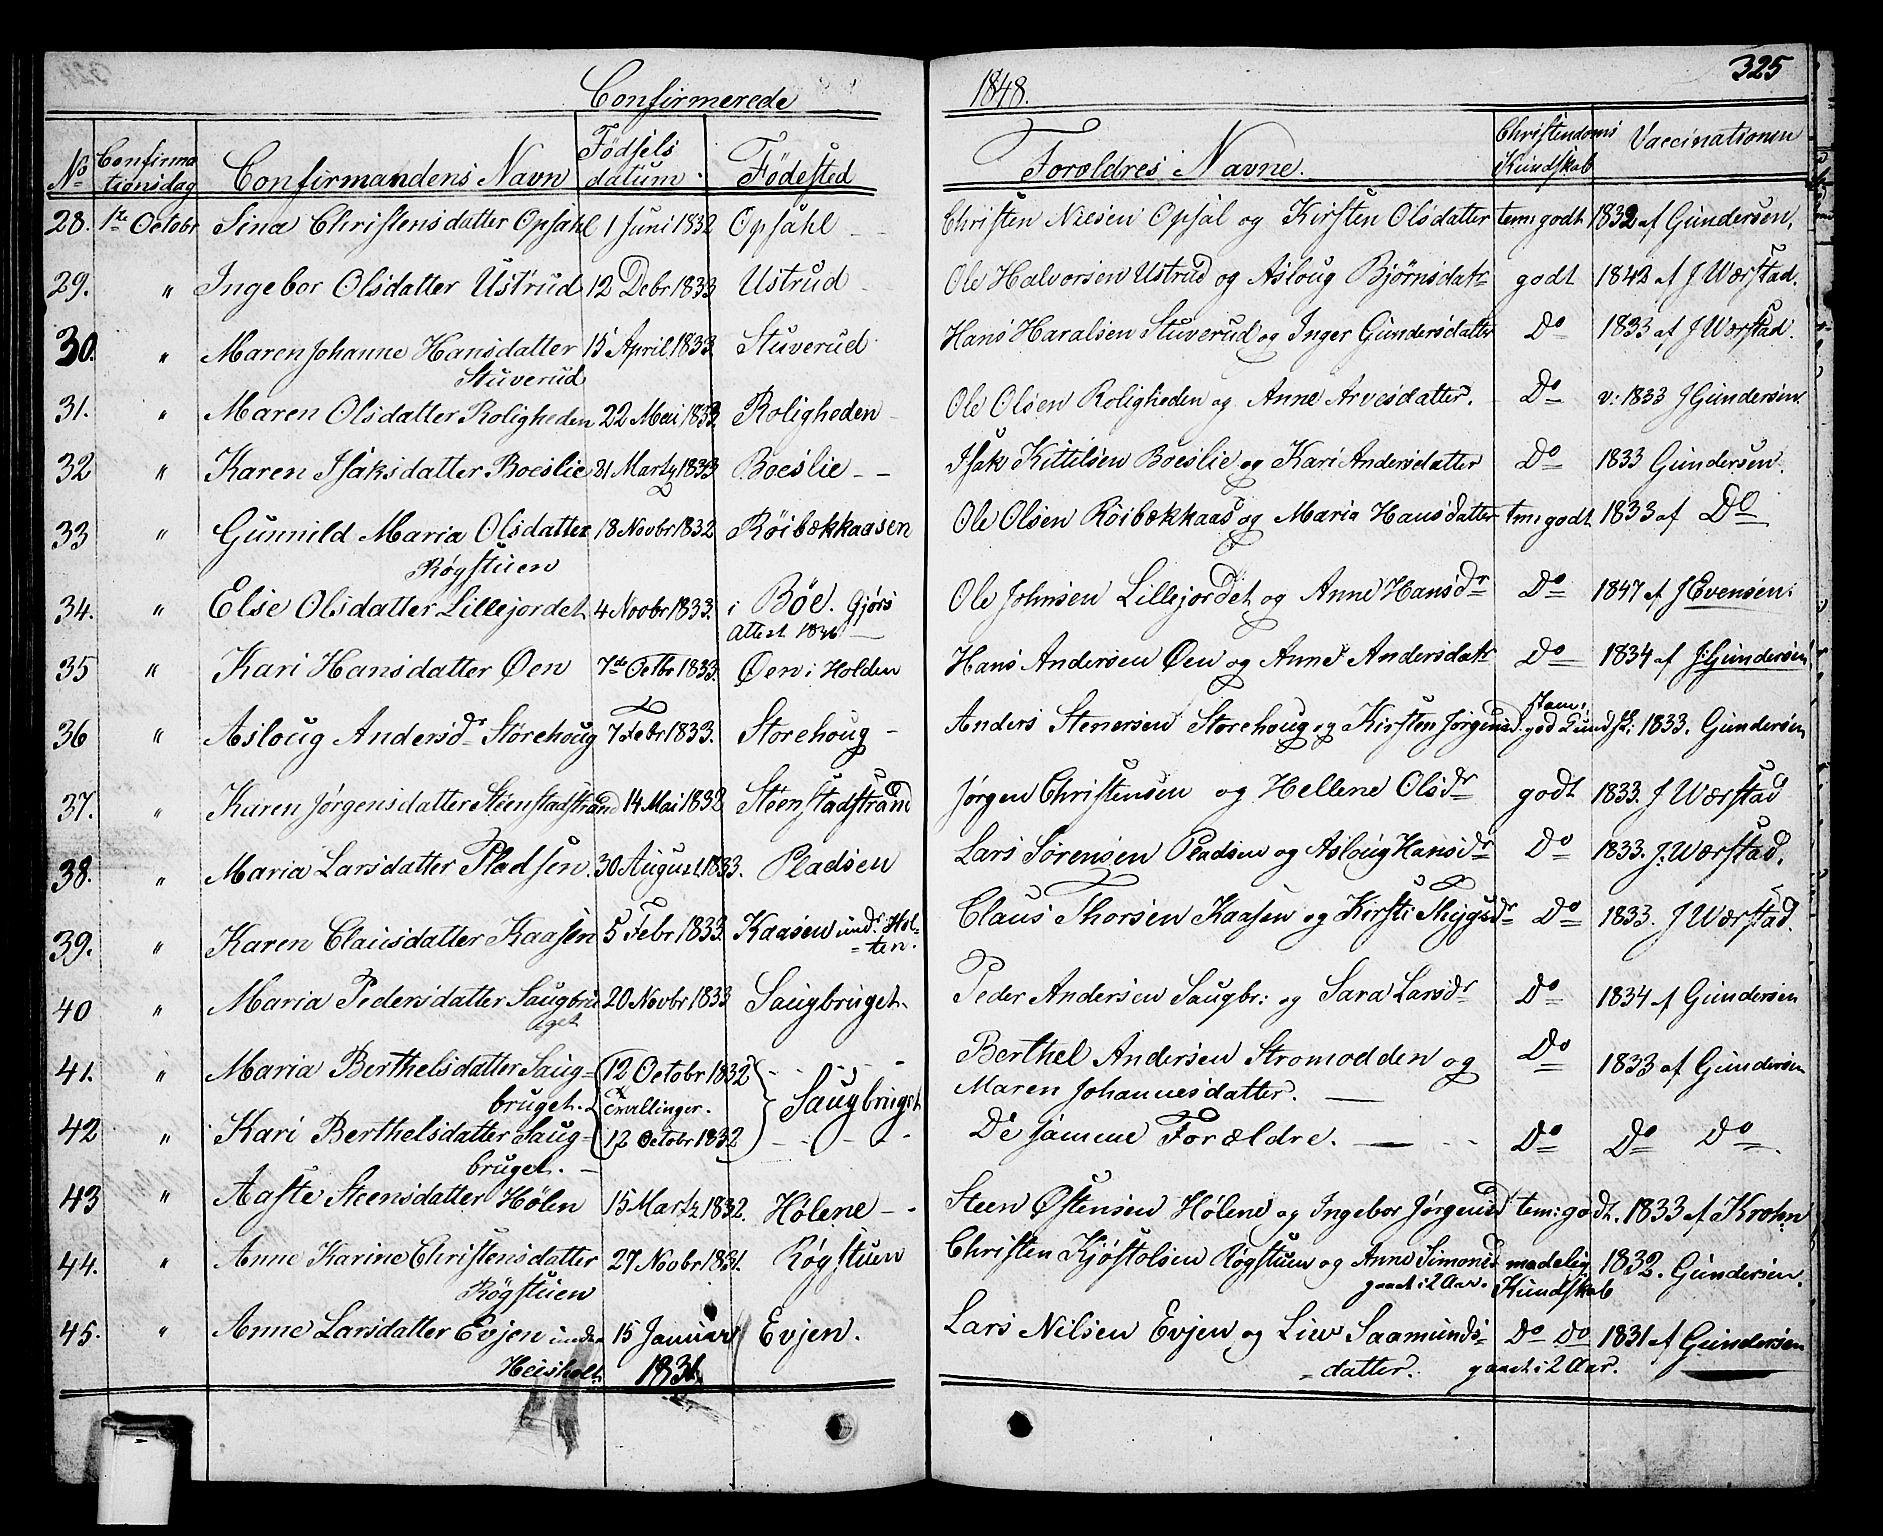 Confirmerede 1848. 325
No Confirmationsdag Confirmandens Navn Födsels datum Födested Foroldres Navne. Christendoms Kundskab Vaccinationen
28. 1te Octobr Sina Christensdatter Opsahl 1 Juni 1832 Opsahl - - Christen Nielsen Opsal og Kirsten Olsdatter tem: godt 1832 af Gundersen.
29. " Ingebor Olsdatter Ustrud 12 Debr 1833 Ustrud - Ole Halvorsen Ustrud og Asloug Bjørnsdatr godt 1842 af J Wærstad.
30. " Maren Johanne Hansdatter 15 April 1833. Stuverud Hans Haralsen Stuverud og Inger Gundersdatter Do 1833 af J Wærstad.
Stuverud
31. " Maren Olsdatter Roligheden 22 Mai 1833 Roligheden - Ole Olsen Roligheden og Anne Arvesdatter. Do v: 1833 J Gundersen.
32 " Karen Isaksdatter Boeslie 21 Martz 1833 Boeslie - - Isak Kittilsen Boeslie og Kari Andersdatter Do 1833 Gundersen.
33 " Gunnild Maria Olsdatter 18 Novbr 1832 Röibækkaasen Ole Olsen Röibækkaas og Maria Hansdatter tm: godt 1833 af Do
Røgstuen
34. " Else Olsdatter Lillejordet 4 Novbr 1833. i Böe. Gjörs Ole Johnsen Lillejordet og Anne Hansdr Do 1847 af J Evensen.
Attest 1846
35 " Kari Hansdatter Øen 7de Octbr 1833. Øen i Holden Hans Andersen Øen og Anne Andersdatr Do 1834 af J: Gundersen
36 " Asloug Andersdr Störehoug 7 Febr 1833. Storehoug - Anders Stenersen Storehoug og Kirsten Jørgensd. tem: god Kundsk: 1833. Gundersen
37. " Karen Jørgensdatter Steenstadstrand 14 Mai 1832 Steenstadstrand Jørgen Christensen og Hellene Olsdr godt 1833. J Wærstad
38. " Maria Larsdatter Pladsen. 30 August 1833. Pladsen Lars Sörensen Pladsen og Asloug Hansdr Do 1833. J. Wærstad.
39. " Karen Clausdatter Kaasen 5 Febr 1833. Kaasen undr: Hol- Claus Thorsen Kaasen og Kirsti Thygesdr Do 1833. J Wærstad.
ten.
40 " Maria Pedersdatter Saugbru 20 Novbr 1833 Saugbruget. Peder Andersen Saugbr: og Sara Larsdr Do 1834 af Gundersen
get
41. " Maria Berthelsdatter Saug- 12 Octobr 1832 - - - - Berthel Andersen Stromodden og Do 1833 af Gundersen
bruget. Tvillinger. Saugbruget Maren Johannesdatter.
42 " Kari Berthelsdatter Saug- 12 Octobr 1832 - - - - De samme Forældre. Do Do Do
bruget. -
43 " Aaste Steensdatter Hölen 15 Martz 1832. Hölene - - Steen Østensen Hölene og Ingebor Jørgensd tem: godt. 1833 af Krohn
44. " Anne Karine Christensdatter 27 Novbr 1831. Røgstuen Christen Kjøstolsen Røgstuen og Anne Simonsd madelig 1832. Gundersen.
Røgstuen gaaet i 2 Aar. Kundskab
45. " Anne Larsdatter Evjen under 15 Januar Evjen. Lars Nilsen Evjen og Liv Saamunds- Do Do 1831 af Gundersen
Heisholt 1831 datter. gaaet i 2 Aar.